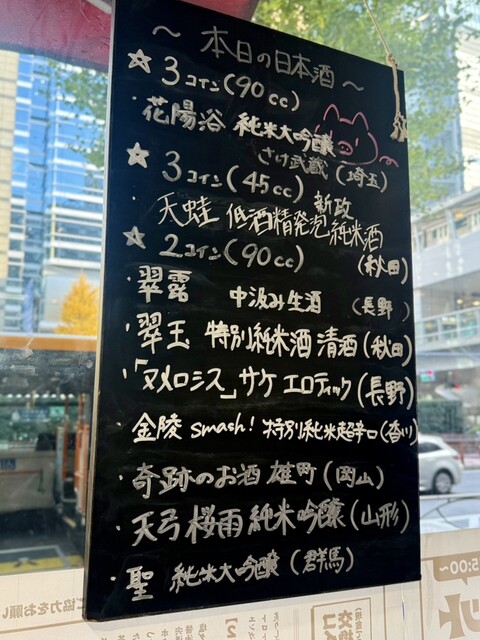 ～ 本日の日本酒 ～
☆ 3コイン(90cc)
・花陽浴 純米大吟醸
さけ武蔵(埼玉)
☆ 3コイン(45cc) 新政
・天蛙 低酒精発泡純米酒
(秋田)
☆ 2コイン(90cc)
・翠露 中汲み生酒 (長野)
・翠玉 特別純米酒 清酒(秋田)
・「ヌメロシス」サケ エロティック(長野)
・金陵 smash! 特別純米超辛口(香川)
・奇跡のお酒 雄町(岡山)
・天弓 桜雨 純米吟醸(山形)
・聖 純米大吟醸(群馬)
ご協力をお願い
5:00～
ット